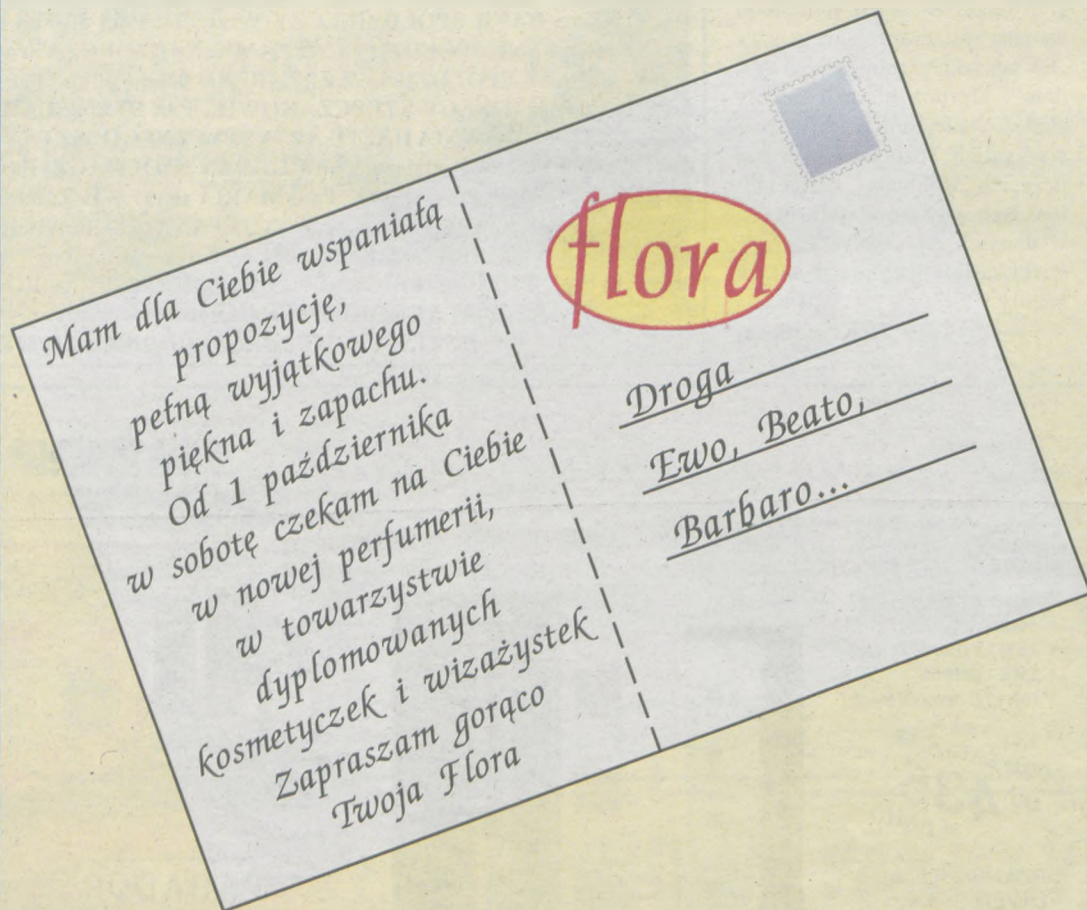 Mam dla Ciebie wspaniałą
propozycję,
pełną wyjątkowego
piękna i zapachu.
Od 1 października
w sobotę czekam na Ciebie
w nowej perfumerii,
w towarzystwie
dyplomowanych
kosmetyczek i wizażystek
Zapraszam gorąco
Twoja Flora
flora
Droga
Ewo, Beato,
Barbaro...